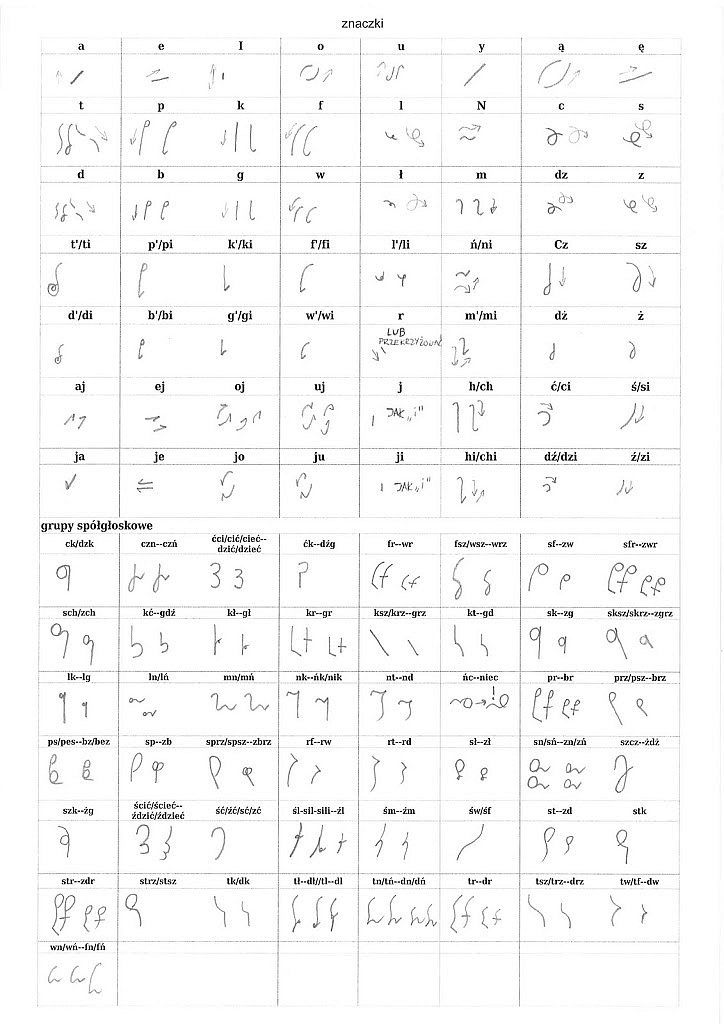 znaczki
a e I o u y ą ę
t p k f l N c s
d b g w ł m dz z
t'/ti p'/pi k'/ki f'/fi l'/li ń/ni Cz sz
d'/di b'/bi g'/gi w'/wi r m'/mi dż ż
LUB
PRZEKRZYŻOWAĆ
aj ej oj uj j h/ch ć/ci ś/si
JAK „i"
ja je jo ju ji hi/chi dź/dzi ź/zi
JAK „i"
grupy spółgłoskowe
ck/dzk czn--czń ćci/cić/cieć--dzić/dzieć ćk--dźg fr--wr fsz/wsz--wrz sf--zw sfr--zwr
sch/zch kć--gdź kł--gł kr--gr ksz/krz--grz kt--gd sk--zg sksz/skrz--zgrz
lk--lg ln/lń mn/mń nk--ńk/nik nt--nd ńc--niec pr--br prz/psz--brz
ps/pes--bz/bez sp--zb sprz/spsz--zbrz rf--rw rt--rd sł--zł sn/sń--zn/zń szcz--żdż
szk--żg ścić/ścieć--ździć/ździeć ść/źć/sć/zć śl-sil-sili--źl śm--źm św/śf st--zd stk
str--zdr strz/stsz tk/dk tł--dł//tl--dl tn/tń--dn/dń tr--dr tsz/trz--drz tw/tf--dw
wn/wń--fn/fń